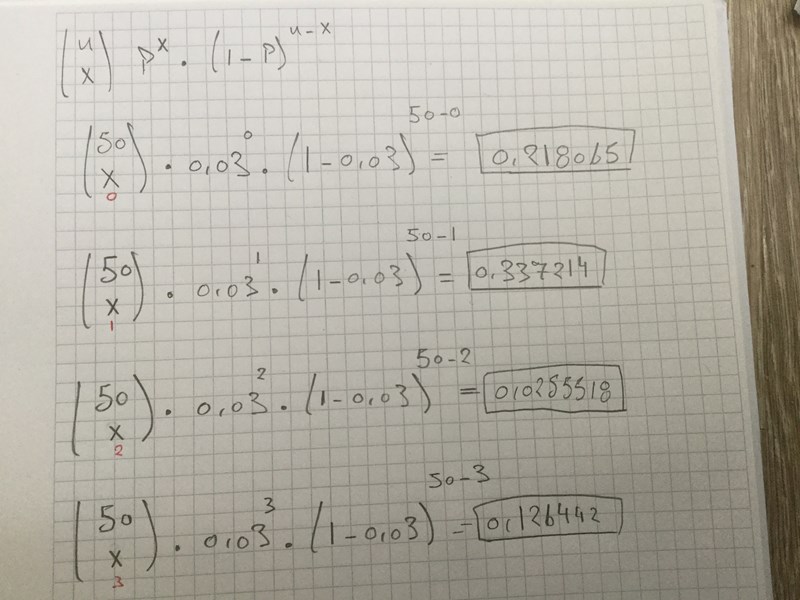 (n x) p^x · (1-p)^n-x
(50 x 0) · 0,03^0 · (1-0,03)^50-0 = 0,218065
(50 x 1) · 0,03^1 · (1-0,03)^50-1 = 0,337214
(50 x 2) · 0,03^2 · (1-0,03)^50-2 = 0,0255518
(50 x 3) · 0,03^3 · (1-0,03)^50-3 = 0,126442